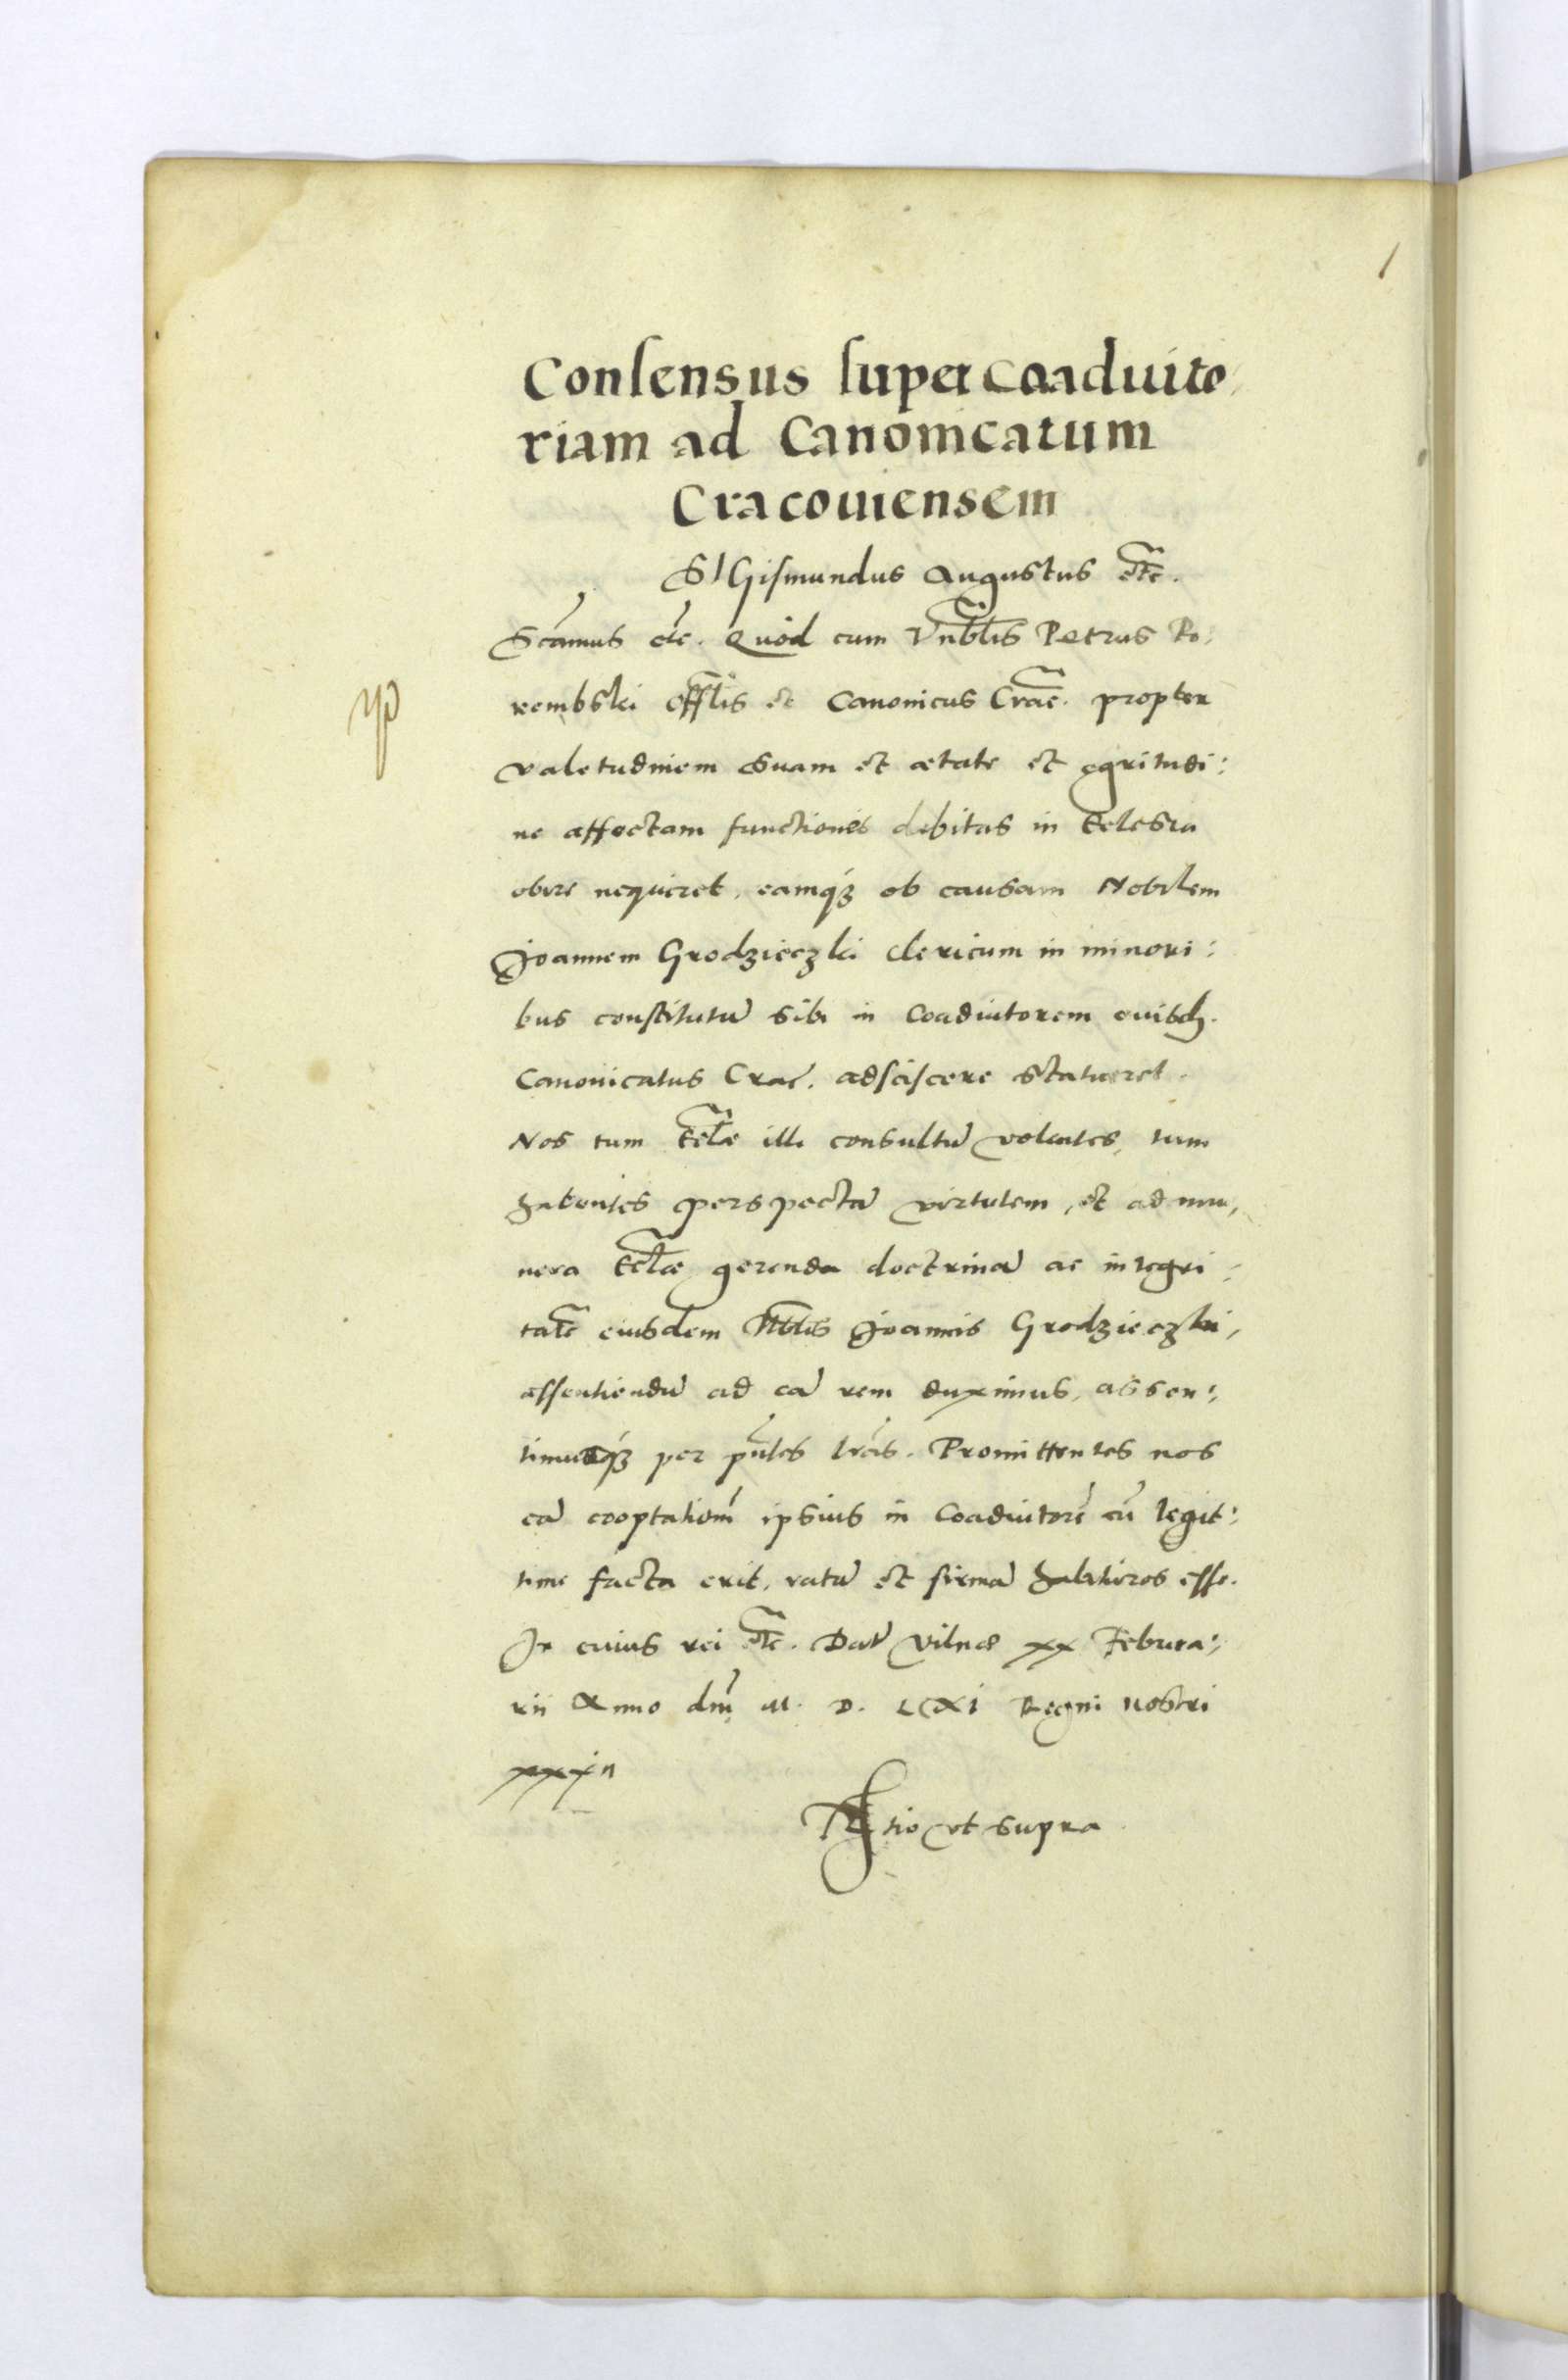 1
Consensus super Coadiuto,
riam ad Canonicatum
Cracouiensem
SIGismundus Augustus etc.
Scamus etc. Quod cum Vnblis Petrus Po,
rembski offlis et Canonicus Crac. propter
valetudinem suam et ætate et ęgritudi:
ne affectam functiones debitas in Eclesia
obire nequiret, eamq́ȝ ob causam Nobilem
Joannem Grodzieczki clericum in minori:
bus constitutū sibi in Coadiutorem euisd.
Canonicatus Crac. adsciscere statueret.
Nos tum Eclæ illi consultū volentes, tum
habentes perspectā virtutem, et ad mu,
nera Eclæ gerenda doctrinā ac integri:
tatē eiusdem Nblis Joannis Grodzieczki,
assentiendū ad eā rem duximus, assen:
timusq́ȝ per pn̄tes lrās. Promittentes nos
eā cooptationē ipsius in Coadiutorē cū legit:
time facta erit, ratā et firmā habituros esse.
In cuius rei etc. Dat Vilnæ xx Februa:
rii Anno dnī M. D. LXI Regni nostri
xxxii
Rtio vt supra